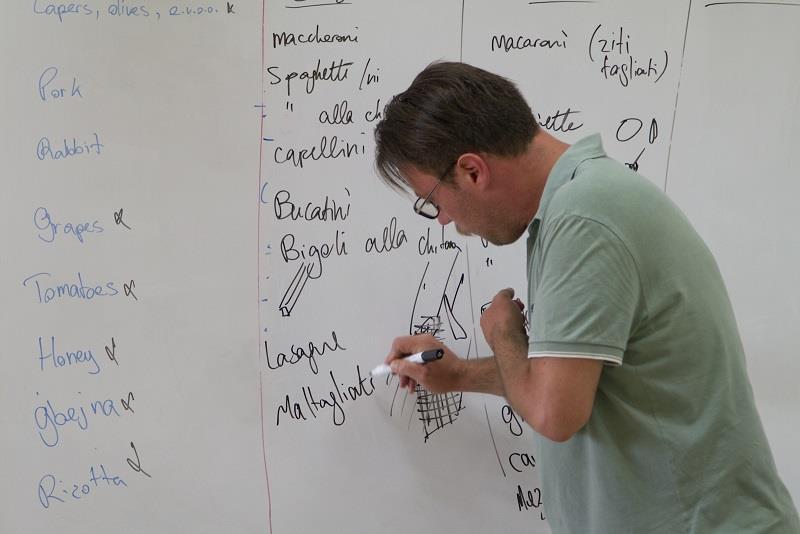 Capers, olives, e.v.o.o.
Pork
Rabbit
Grapes
Tomatoes
Honey
ġbejna
Rizotta
maccheroni
Spaghetti /ni
" alla
capellini
Bucatini
Bigoli alla chitarra
Lasagne
Maltagliati
macaroni (ziti
tagliati)
"